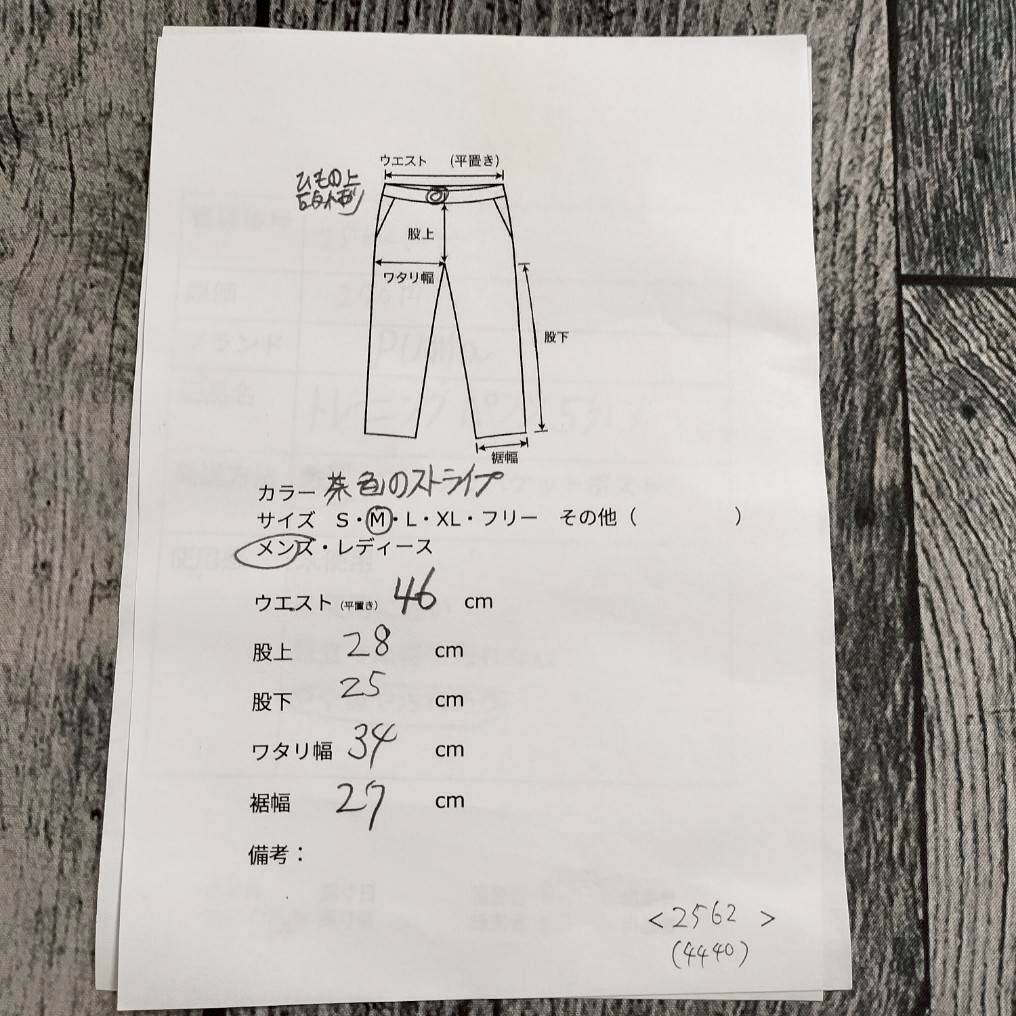 ウエスト (平置き)
ひもの上
股上
ワタリ幅
股下
裾幅
カラー 茶色のストライプ
サイズ S・M・L・XL・フリー その他（ ）
メンズ・レディース
ウエスト（平置き） 46 cm
股上 28 cm
股下 25 cm
ワタリ幅 34 cm
裾幅 27 cm
備考：
<2562>
(4440)